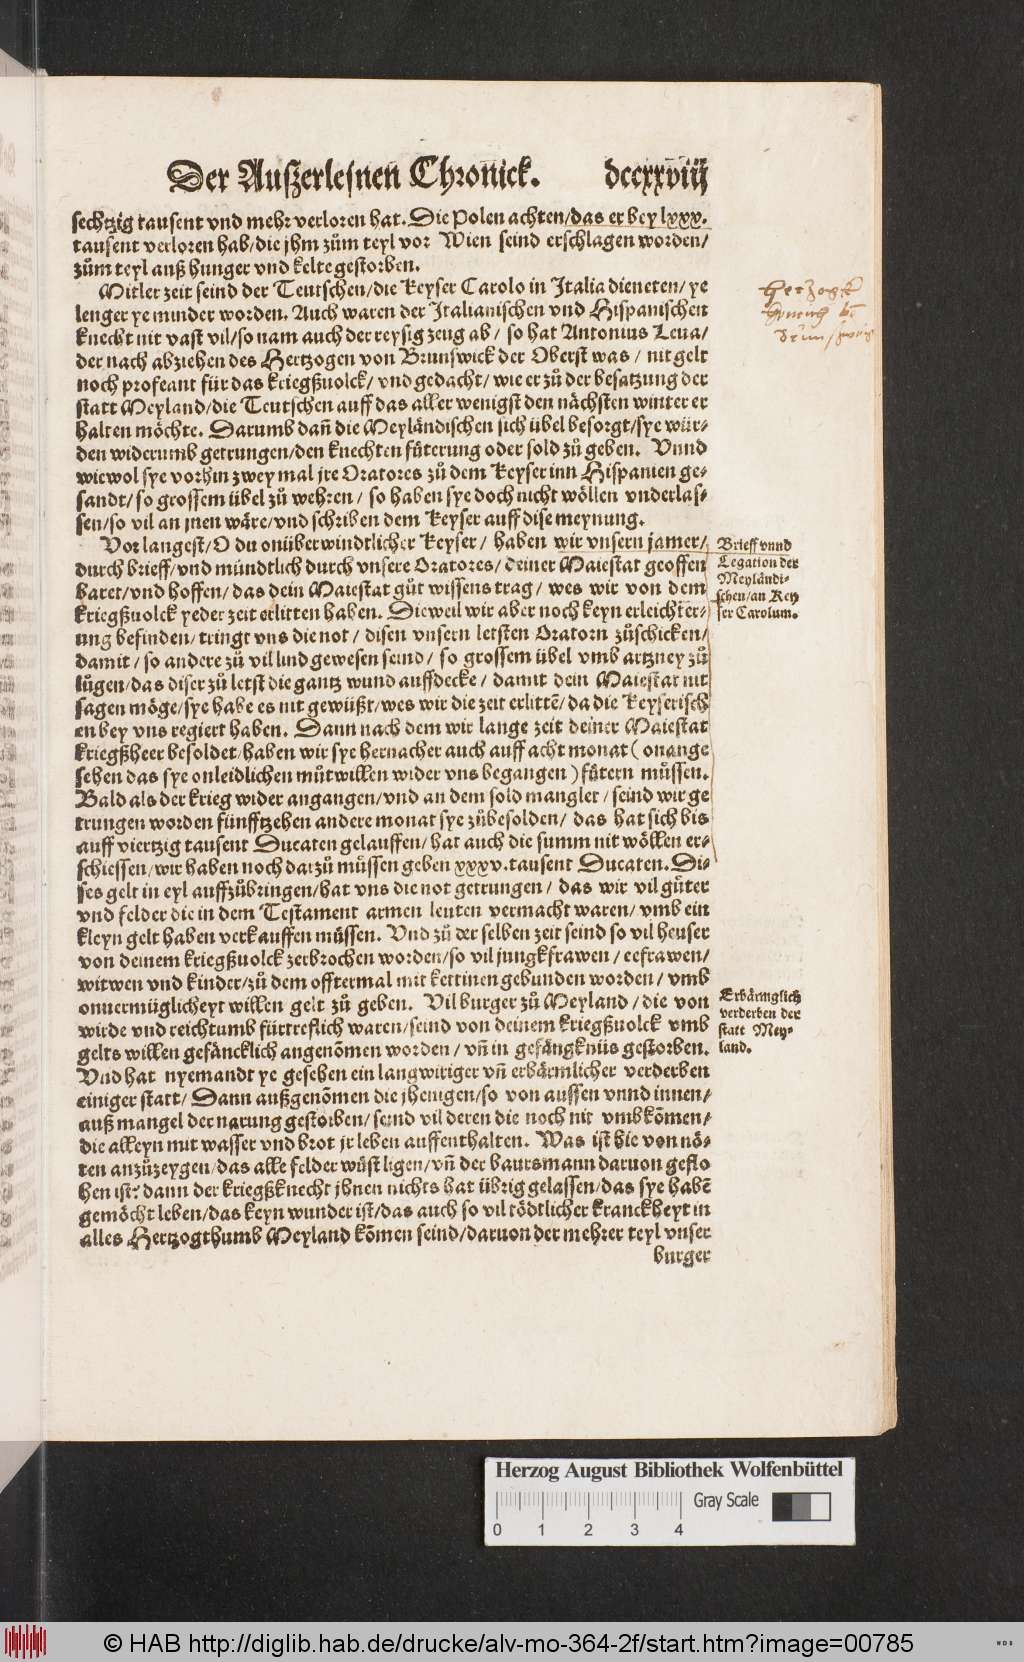 Der Außerlesnen Chronick. dccxxviij
sechtzig tausent vnd mehr verloren hat. Die Polen achten/das er bey lxxx.
tausent verloren hab/die jhm zům teyl vor Wien seind erschlagen worden/
zům teyl auß hunger vnd kelte gestorben.
Mitler zeit seind der Teutschen/die Keyser Carolo in Italia dieneten/ ye
lenger ye minder worden. Auch waren der Italianischen vnd Hispanischen
knecht nit vast vil/so nam auch der reysig zeug ab/ so hat Antonius Leua/
der nach abziehen des Hertzogen von Brunswick der Oberst was/ nit gelt
noch profeant für das kriegßuolck/ vnd gedacht/ wie er zů der besatzung der
statt Meyland/die Teutschen auff das aller wenigst den nächsten winter er
halten möchte. Darumb dañ die Meyländischen sich übel besorgt/sye wür-
den widerumb getrungen/den knechten fůterung oder sold zů geben. Vnnd
wiewol sye vorhin zwey mal jre Oratores zů dem Keyser inn Hispanien ge-
sandt/so grossem übel zů wehren/ so haben sye doch nicht wöllen vnderlas-
sen/so vil an jnen wäre/vnd schriben dem Keyser auff dise meynung.
Vor langest/O du onüberwindtlicher Keyser/ haben wir vnsern jamer/
durch brieff/vnd mündtlich durch vnsere Oratores/ deiner Maiestat geoffen
baret/vnd hoffen/das dein Maiestat gůt wissens trag/ wes wir von dem
kriegßuolck yeder zeit erlitten haben. Dieweil wir aber noch keyn erleichter-
ung befinden/tringt vns die not/ disen vnsern letsten Oratorn zůschicken/
damit/so andere zů vil lind gewesen seind/ so grossem übel vmb artzney zů
lůgen/das diser zů letst die gantz wund auffdecke/ damit dein Maiestat nit
sagen möge/sye habe es nit gewüßt/wes wir die zeit erlittē/da die Keyserisch
en bey vns regiert haben. Dann nach dem wir lange zeit deiner Maiestat
kriegßheer besoldet/haben wir sye hernacher auch auff acht monat (onange
sehen das sye onleidlichen můtwillen wider vns begangen) fůtern můssen.
Bald als der krieg wider angangen/vnd an dem sold manglet/ seind wir ge
trungen worden fünfftzehen andere monat sye zůbesolden/ das hat sich bis
auff viertzig tausent Ducaten gelauffen/ hat auch die summ nit wöllen er-
schiessen/wir haben noch darzů můssen geben xxxv. tausent Ducaten. Di-
ses gelt in eyl auffzůbringen/hat vns die not getrungen/ das wir vil gůter
vnd felder die in dem Testament armen leuten vermacht waren/ vmb ein
kleyn gelt haben verkauffen můssen. Vnd zů der selben zeit seind so vil heuser
von deinem kriegßuolck zerbrochen worden/so vil jungkfrawen/ eefrawen/
witwen vnd kinder/zů dem offtermal mit kettinen gebunden worden/ vmb
onuermüglicheyt willen gelt zů geben. Vil burger zů Meyland/die von
wirde vnd reichtumb fürtreflich waren/seind von deinem kriegßuolck vmb
gelts willen gefäncklich angenōmen worden/ vñ in gefängknüs gestorben.
Vnd hat nyemandt ye gesehen ein langwiriger vñ erbärmlicher verderben
einiger statt/ Dann außgenōmen die jhenigen/so von aussen vnnd innen/
auß mangel der narung gestorben/ seind vil deren die noch nit vmbkōmen/
die alleyn mit wasser vnd brot jr leben auffenthalten. Was ist hie von nö-
ten anzůzeygen/das alle felder wüst ligen/vñ der baursmann daruon geflo
hen ist? dann der kriegßknecht jhnen nichts hat übrig gelassen/das sye habē
gemöcht leben/das keyn wunder ist/das auch so vil tödtlicher kranckheyt in
alles Hertzogthumb Meyland kōmen seind/daruon der mehrer teyl vnser
burger
Hertzogk
Brieff vnnd
Legation der
Meyländi-
schen/an Key
ser Carolum.
Erbärmglich
verderben der
statt Mey-
land.
Herzog August Bibliothek Wolfenbüttel
Gray Scale
0 1 2 3 4
© HAB http://diglib.hab.de/drucke/alv-mo-364-2f/start.htm?image=00785